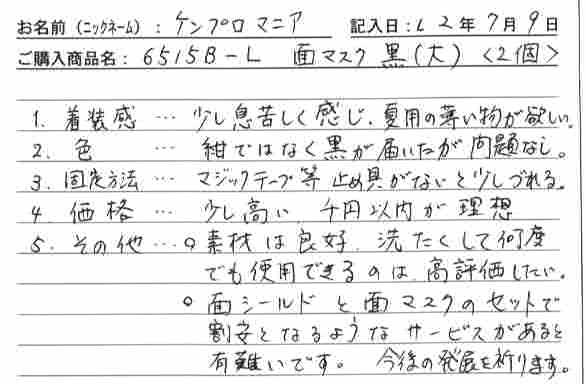 お名前（ニックネーム）：ケンプロマニア　記入日：L2年7月9日
ご購入商品名：6515B-L　面マスク 黒(大)〈2個〉
1. 着装感 … 少し息苦しく感じ、夏用の薄い物が欲しい。
2. 色 … 紺ではなく黒が届いたが問題なし。
3. 固定方法 … マジックテープ等 止め具がないと少しづれる。
4 価格 … 少し高い、千円以内が理想
5. その他 … ○ 素材は良好、洗たくして何度
でも使用できるのは、高評価したい。
○ 面シールドと面マスクのセットで
割安となるようなサービスがあると
有難いです。　今後の発展を祈ります。